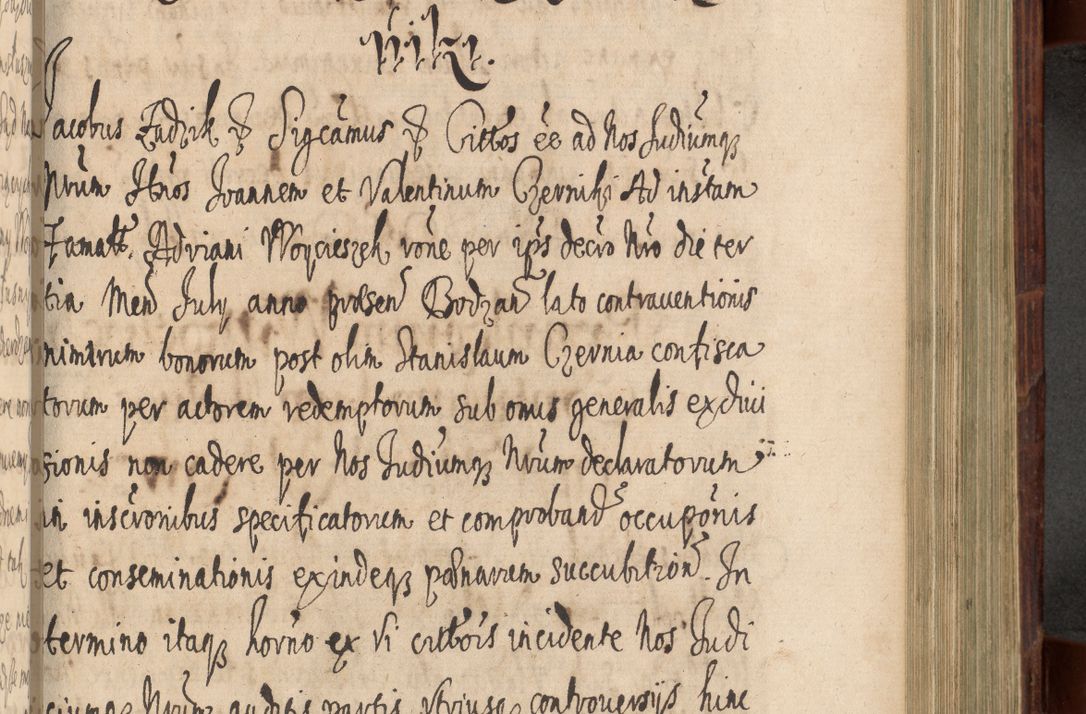 niki.
Jacobus Zadzik etc Sigcamus etc Cittos ee ad Nos Judiumqȝ
Nrum Hnos Joannem et Valentinum Czerniki Ad instam
Famatt. Adriani Woycieszek rone per ips decro Nro die ter
tia Men July anno praesen Bodzan lato contrauentionis
nimirum bonorum post olim Stanislaum Czernia confisca
torum per actorem redemptorum sub onus generalis exdiui
sionis non cadere per Nos Judiumqȝ Nrum declaratorum
in inscronibus specificatorum et comproband occuponis
et conseminationis exindeqȝ paenarum succubition. In
termino itaqȝ horno ex vi cittois incidente Nos Judi
ciumqȝ Nrum auditis partis vtriusqȝ controuersijs hinc